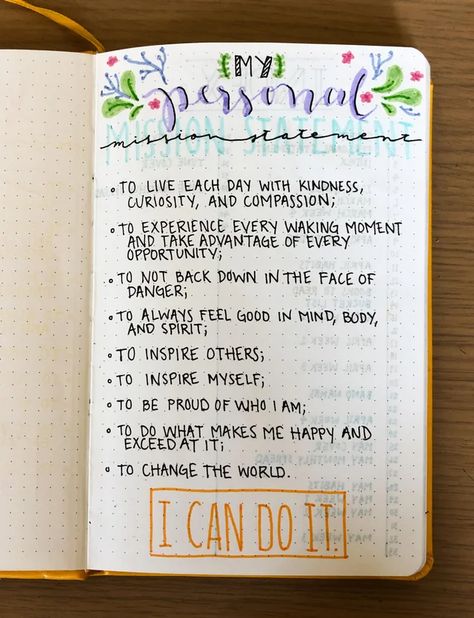 MY
personal
MISSION STATEMENT
mission statement
TO LIVE EACH DAY WITH KINDNESS,
CURIOSITY, AND COMPASSION;
TO EXPERIENCE EVERY WAKING MOMENT
AND TAKE ADVANTAGE OF EVERY
OPPORTUNITY;
TO NOT BACK DOWN IN THE FACE OF
DANGER;
TO ALWAYS FEEL GOOD IN MIND, BODY,
AND SPIRIT;
TO INSPIRE OTHERS;
TO INSPIRE MYSELF;
TO BE PROUD OF WHO I AM;
TO DO WHAT MAKES ME HAPPY AND
EXCEED AT IT;
TO CHANGE THE WORLD.
I CAN DO IT.